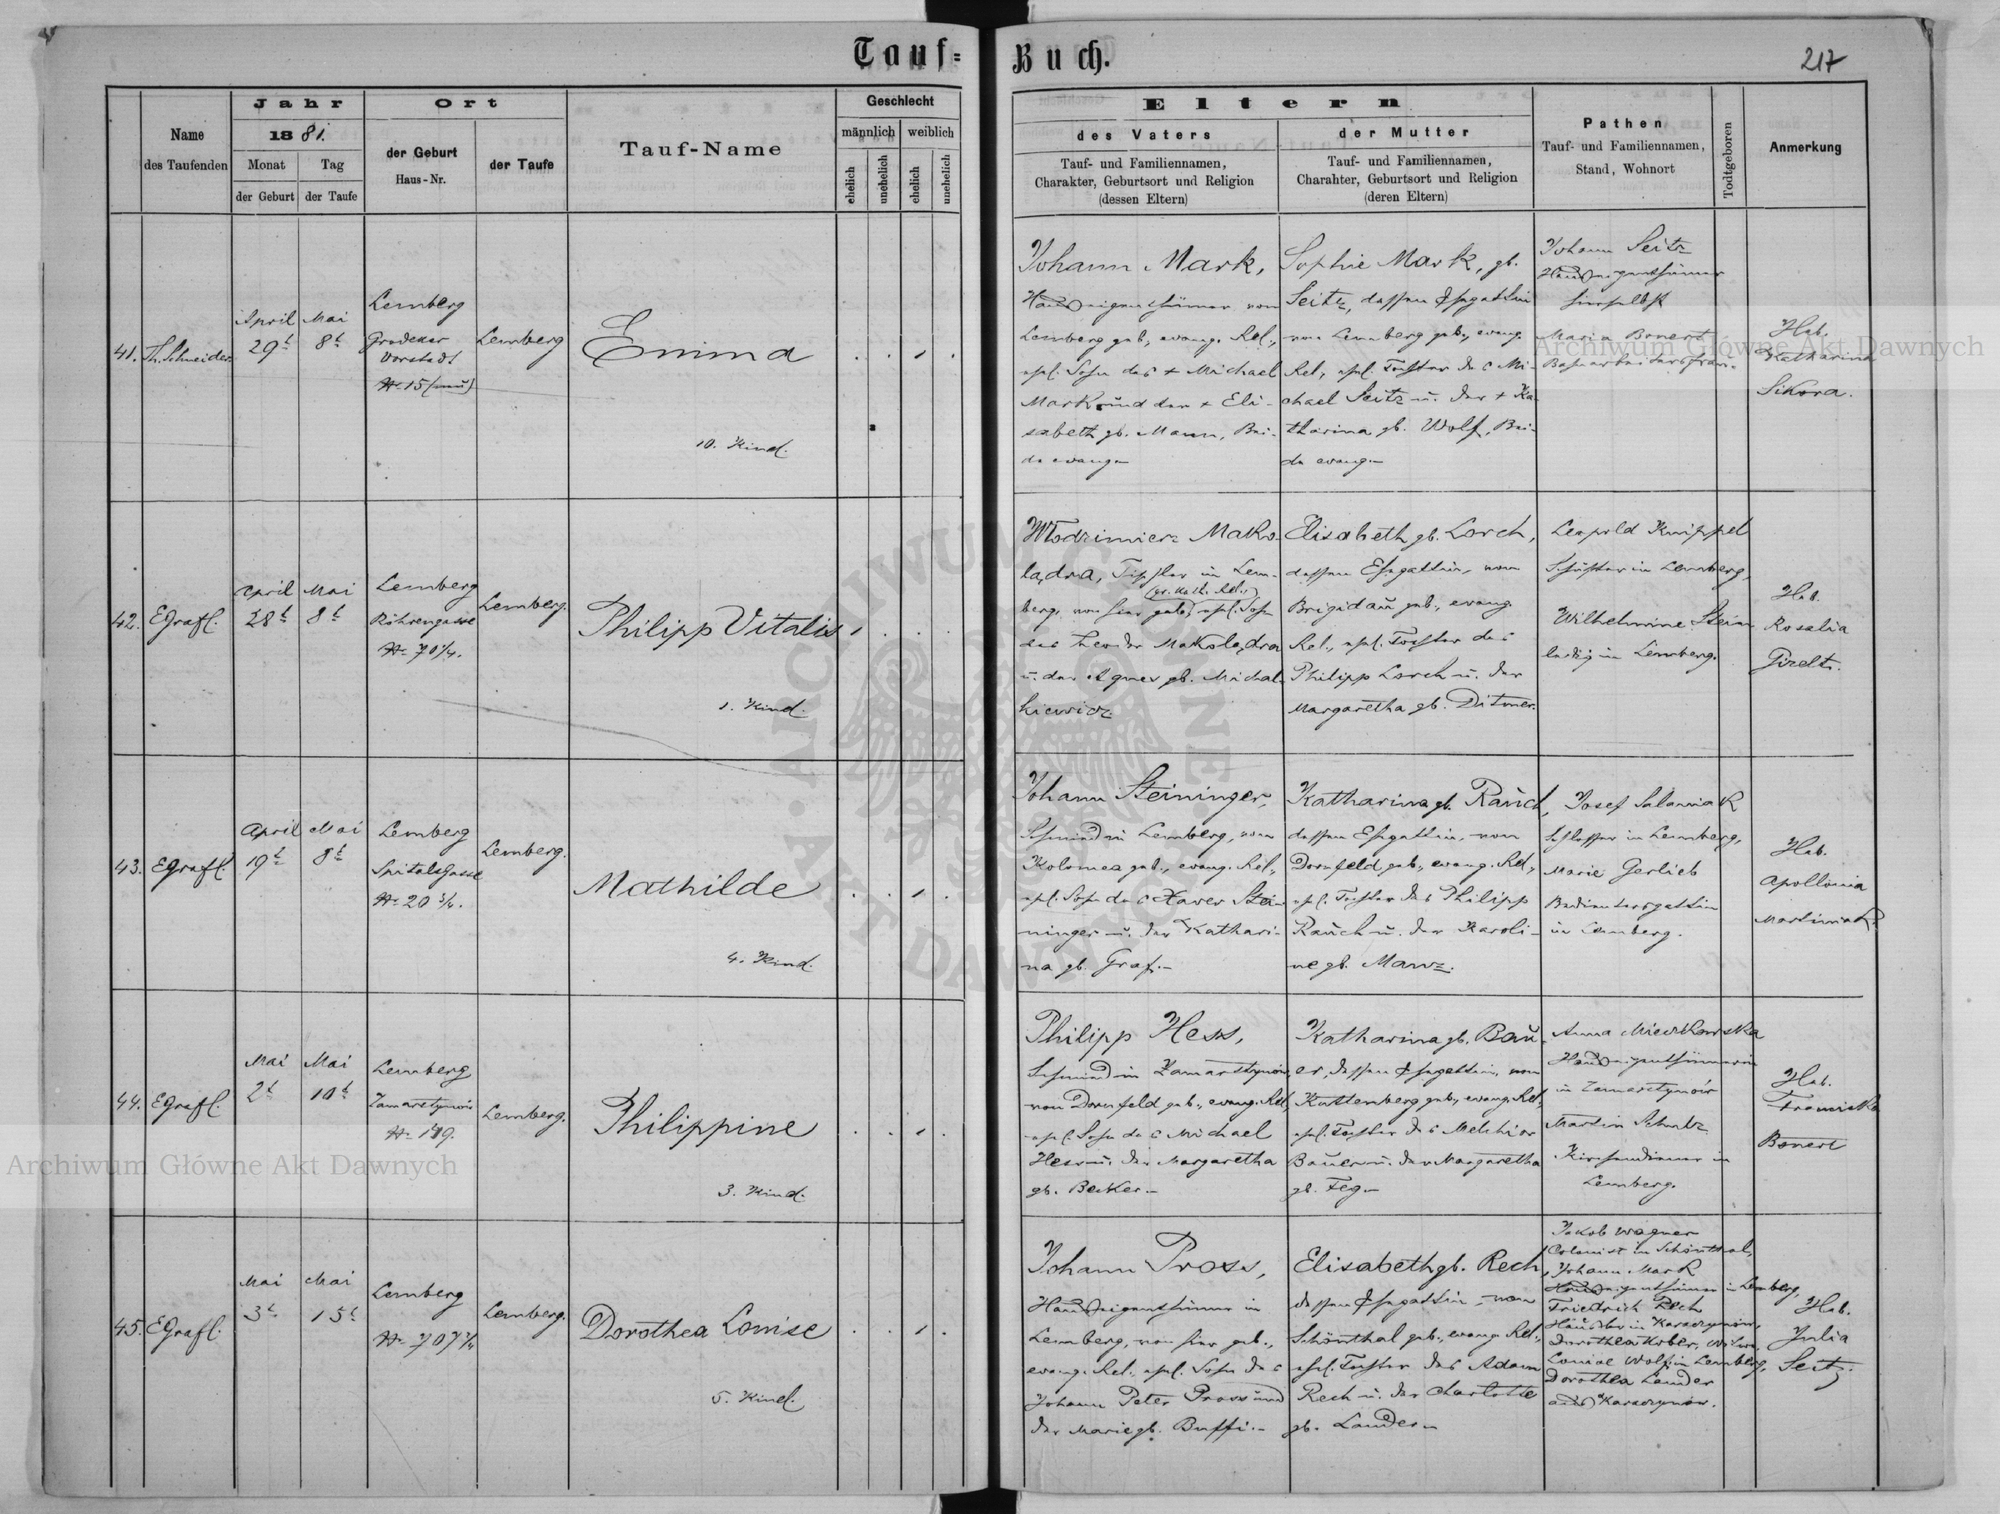 Tauf-Buch.
217
Jahr
1881.
Ort
Geschlecht
Name
des Taufenden
Monat
der Geburt
Tag
der Taufe
der Geburt
Haus-Nr.
der Taufe
Tauf-Name
männlich
weiblich
ehelich
unehelich
ehelich
unehelich
Eltern
des Vaters
Tauf- und Familiennamen,
Charakter, Geburtsort und Religion
(dessen Eltern)
der Mutter
Tauf- und Familiennamen,
Charahter, Geburtsort und Religion
(deren Eltern)
Pathen
Tauf- und Familiennamen,
Stand, Wohnort
Todtgeboren
Anmerkung
41.
Th. Schneider
April
29t
Mai
8t
Lemberg
Grodeker
Vorstadt
Nr 15 (neu)
Lemberg
Emma
10. Kind.
Johann Mark,
Hauseigenthümer von
Lemberg geb., evang. Rel.,
ehel. Sohn des + Michael
Mark und der + Eli-
sabeth gb. Mann, Bei-
de evang.
Sophie Mark, gb.
Seitz, dessen Ehegattin
von Lemberg geb., evang.
Rel., ehel. Tochter des Mi-
chael Seitz u. der + Ka-
tharina gb. Wolf, Bei-
de evang.
Johann Seitz
Hauseigenthümer
hierselbst
Maria Bonert
Heb.
Katharina
Sikora.
42.
EGrafl.
April
28t
Mai
8t
Lemberg
Röhrengasse
Nr 70 1/4.
Lemberg.
Philipp Vitalis
1. Kind.
Włodzimierz Mako-
lądra, Tischler in Lem-
(gr. kath. Rel.)
berg, von hier geb., ehel. Sohn
des Teodor Makolądra
u. der Agnes gb. Michal-
kiewicz
Elisabeth gb. Lorch,
dessen Ehegattin, von
Brigidau geb., evang.
Rel., ehel. Tochter des
Philipp Lorch u. der
Margaretha gb. Ditmer.
Leopold Knippel
Schuster in Lemberg,
Wilhelmine Stein
ledig in Lemberg.
Heb.
Rosalia
43.
EGrafl.
April
19t
Mai
8t
Lemberg
Spitalsgasse
Nr 20 3/4.
Lemberg.
Mathilde
4. Kind.
Johann Steininger,
Schmied in Lemberg, von
Kolomea geb., evang. Rel.,
ehel. Sohn des Xaver Stei-
ninger u. der Kathari-
na gb. Graf.
Katharina gb. Rauch,
dessen Ehegattin, von
Dornfeld geb., evang. Rel.,
ehel. Tochter des Philipp
Rauch u. der Karoli-
ne gb. Manz.
Josef Salamiak
Schlosser in Lemberg,
Marie Gerlieb
Bedientersgattin
in Lemberg.
Heb.
Apollonia
Martiniak.
44.
EGrafl.
Mai
2t
Mai
10t
Lemberg
Zamarstynów
Nr 189.
Lemberg.
Philippine
3. Kind.
Philipp Hess,
Schmied in Zamarstynów,
von Dornfeld geb., evang. Rel.,
ehel. Sohn des Michael
Hess u. der Margaretha
gb. Becker.
Katharina gb. Bau-
er, dessen Ehegattin, von
Kuttenberg geb., evang. Rel.,
ehel. Tochter des Melchior
Bauer u. der Margaretha
gb. Feg.
Hauseigenthümerin
in Zamarstynów
Martin Schulz
Kirchendiener in
Lemberg.
Heb.
Franciska
Bonert
45.
EGrafl.
Mai
3t
Mai
15t
Lemberg
Nr 707 1/4
Lemberg.
Dorothea Louise
5. Kind.
Johann Pross,
Hauseigenthümer in
Lemberg, von hier geb.,
evang. Rel., ehel. Sohn des
Johann Peter Pross und
der Marie gb. Buffi.
Elisabeth gb. Rech,
dessen Ehegattin, von
Schönthal geb., evang. Rel.,
ehel. Tochter des Adam
Rech u. der Charlotte
gb. Lander
Jakob Wagner
Colonist in Schönthal,
Johann Mark
Hauseigenthümer in Lemberg,
Friedrich Rech
Dorothea Kober,
Louise Wolf, in Lemberg,
Dorothea Lander
Heb.
Julia
Seitz.
Archiwum Główne Akt Dawnych
Archiwum Główne Akt Dawnych
ARCHIWUM GŁÓWNE AKT DAWNYCH